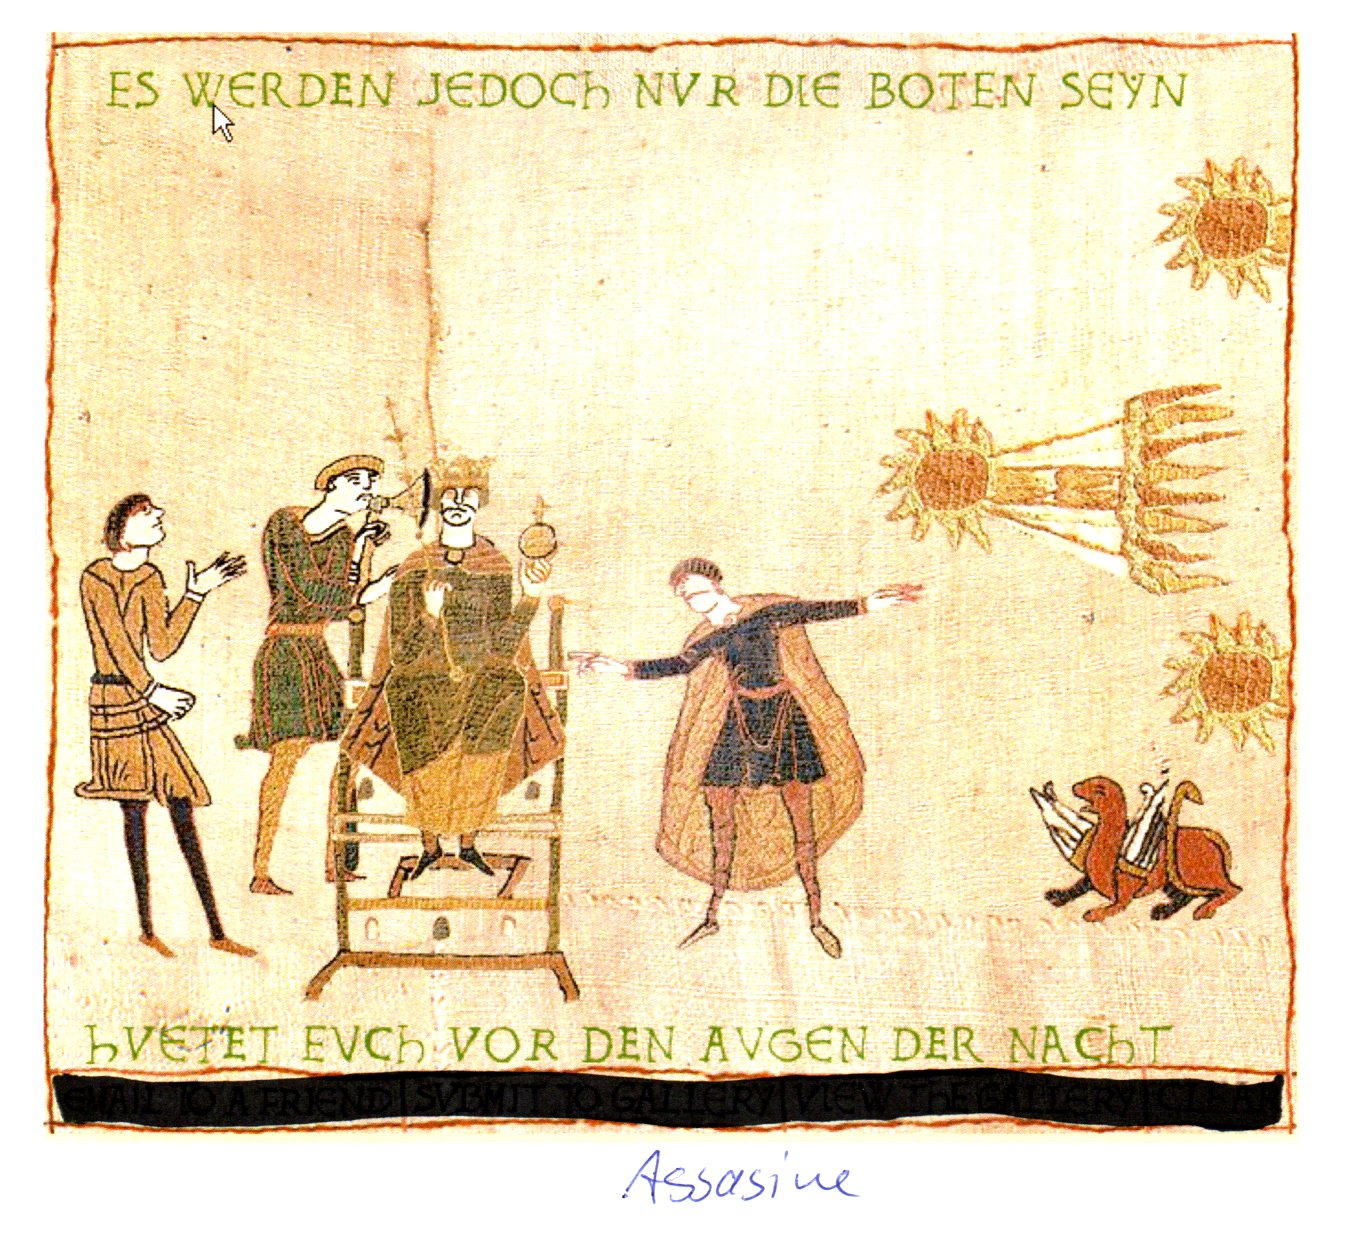 ES WERDEN JEDOCH NVR DIE BOTEN SEŸN
HVETET EVCH VOR DEN AVGEN DER NACHT
EMAIL TO A FRIEND | SVBMIT TO GALLERY | VIEW THE GALLERY | CLEAR
Assasine